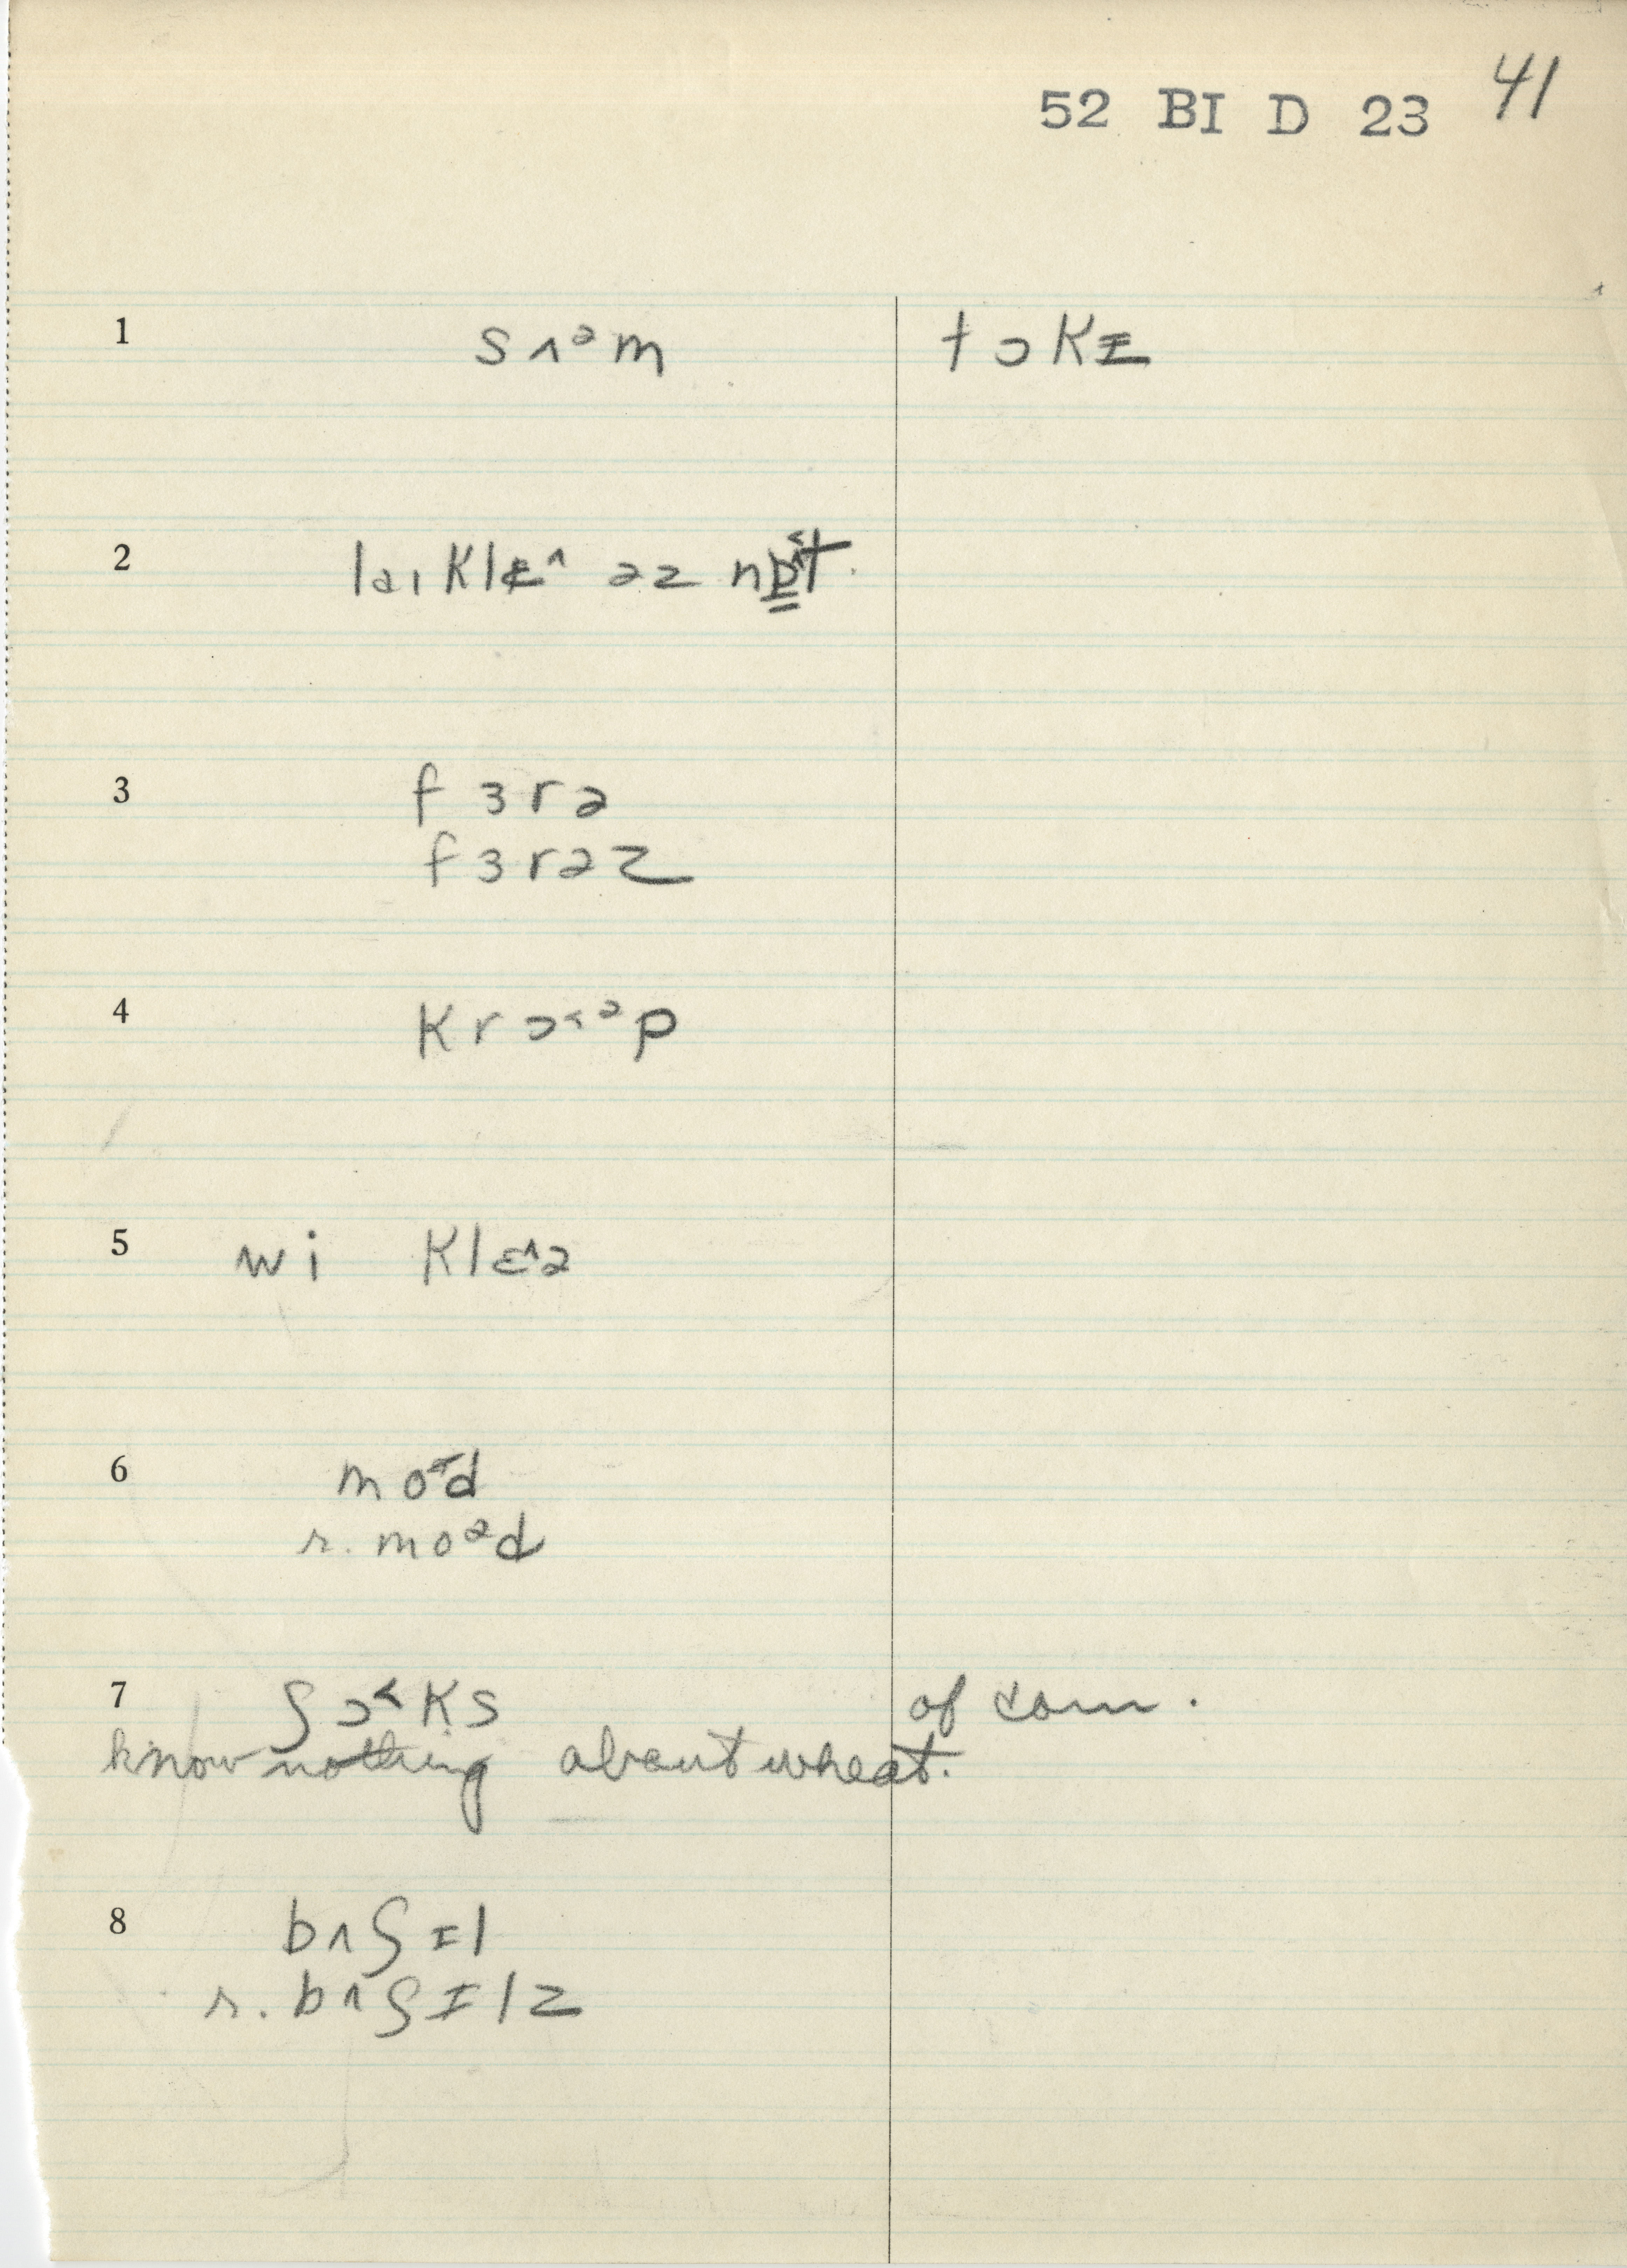 52 BI D 23 41
1 sʌᵊm tɔkɪ
2 laɪklɛ^ əz
3 fɜrə
fɜrəz
4 krɔ˂ᵊp
5 wi klɛ^ə
6 mo˂d
r. moᵊd
7 ʃɔ˂ks of corn.
know nothing about wheat.
8 bʌʃɪl
r. bʌʃɪlz